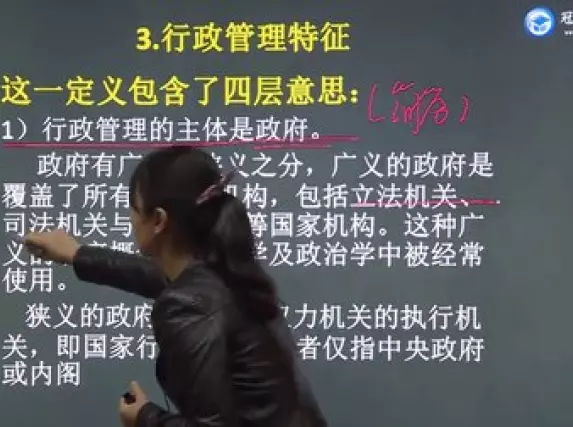 3.行政管理特征
这一定义包含了四层意思：
1）行政管理的主体是政府。
政府有广 义之分，广义的政府是
覆盖了所有 机构，包括立法机关、
司法机关与 等国家机构。这种广
义的 学及政治学中被经常
使用。
狭义的政府 力机关的执行机
关，即国家行 者仅指中央政府
或内阁
冠